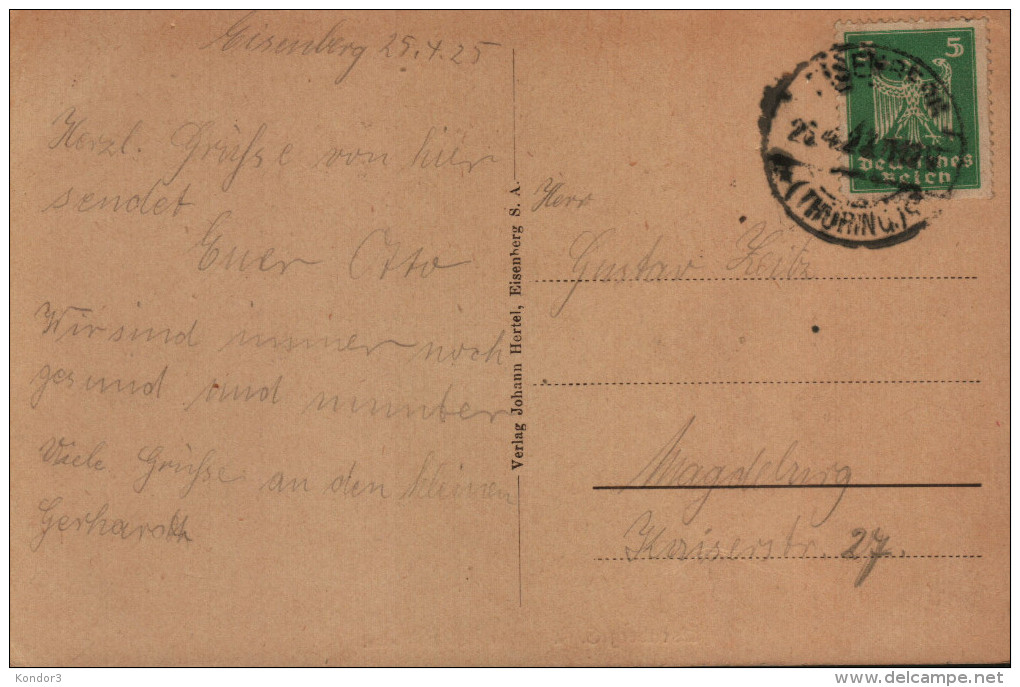 Eisenberg 25.4.25
Herzl. Grüsse von hier
sendet
Euer Otto
Wir sind immer noch
gesund und munter
Viele Grüsse an den kleinen
Gerhardt
Verlag Johann Hertel, Eisenberg S. A.
5
Deutsches
Reich
EISENBERG
(THÜRING.)
Herr
Gustav Zeitz
Magdeburg
Kaiserstr. 27.
Kondor3
delcampe.net